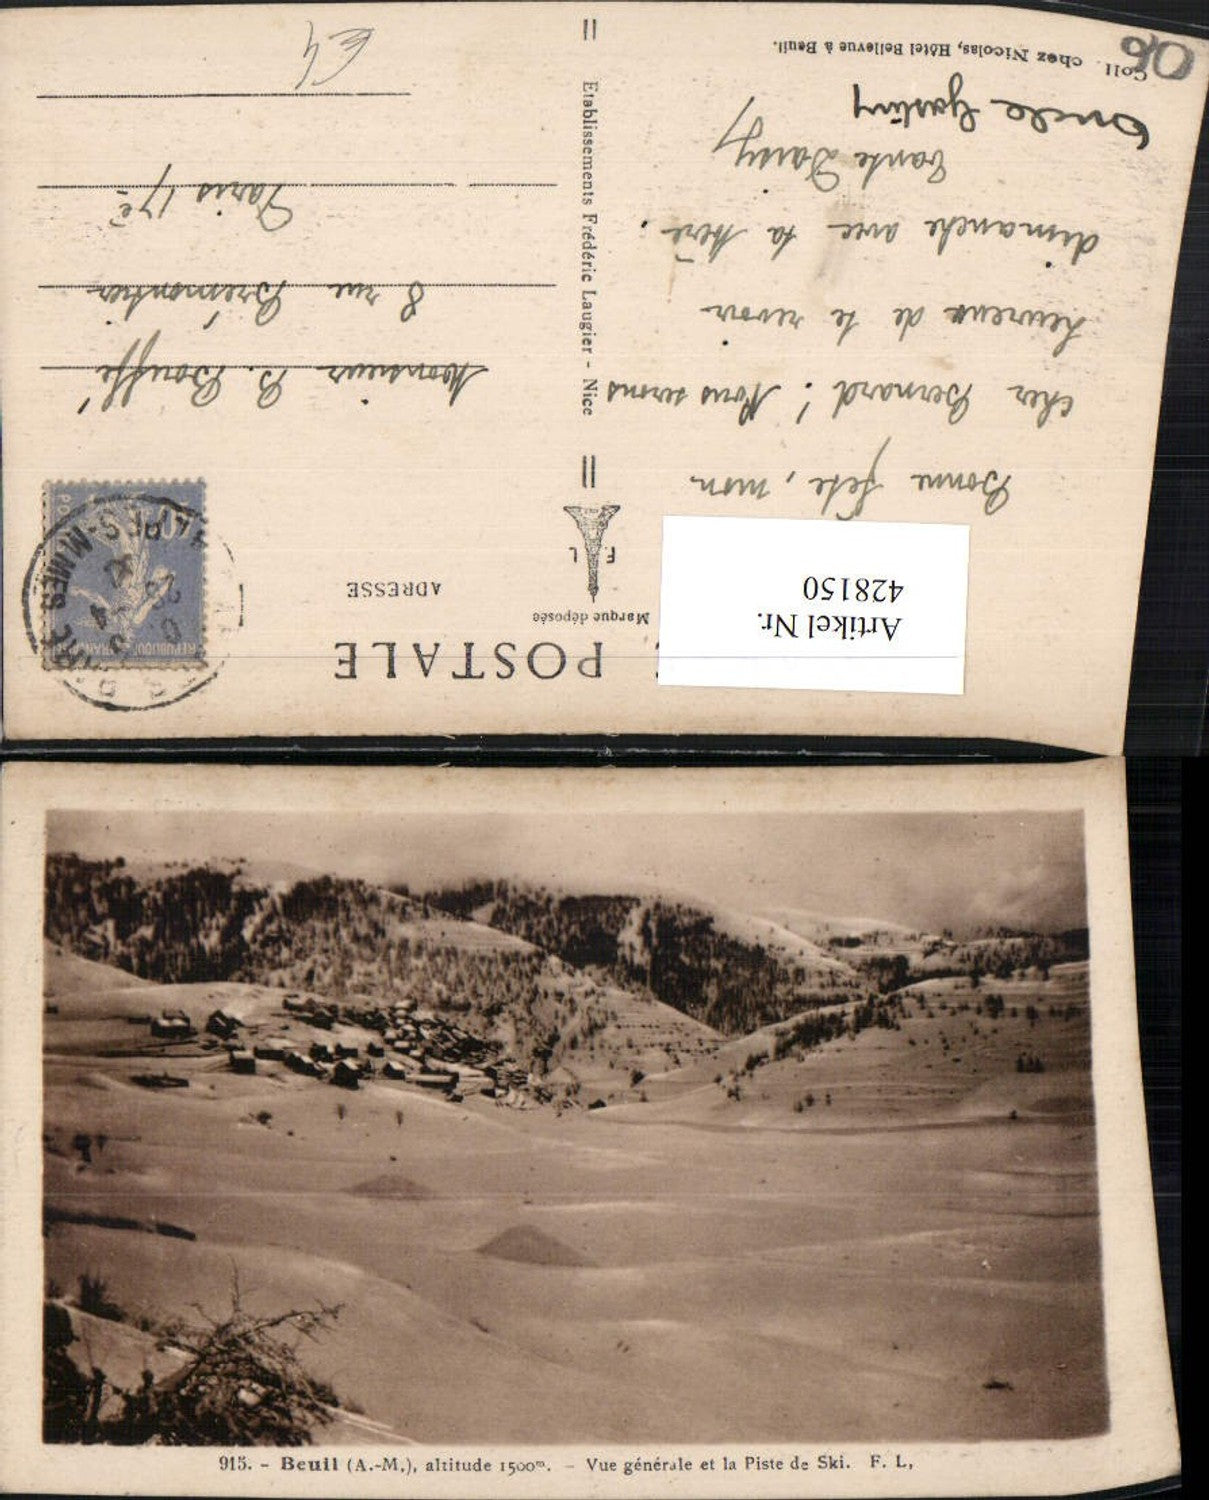 E POSTALE
Marque déposée
F. L
ADRESSE
Artikel Nr.
428150
Bonne fête, mon
cher Bernard! Nous serons
heureux de te revoir
dimanche avec ta Mère.
Tante Daisy
Oncle Gastiny
Coll. chez Nicolas, Hôtel Bellevue à Beuil.
Etablissements Frédéric Laugier - Nice
ALPES-MMES
Monsieur B. Bouffé
8 rue Brémontier
Paris 17e
€4
915. - Beuil (A.-M.), altitude 1500m. - Vue générale et la Piste de Ski. F. L,